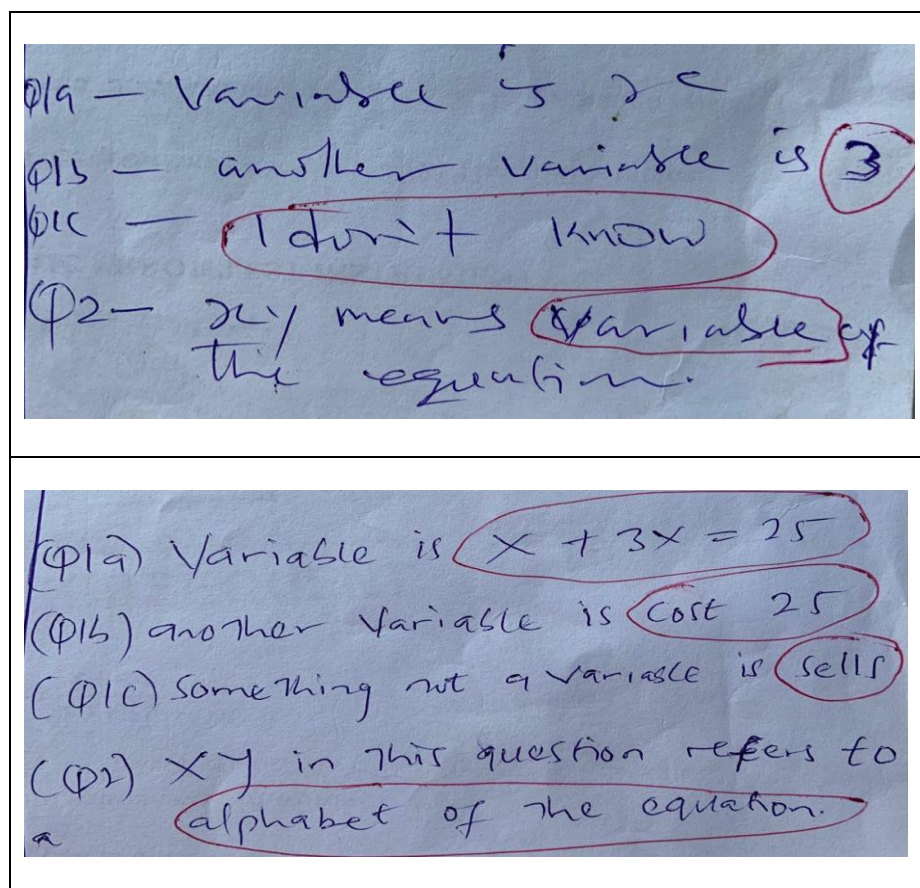 Q1a — Variable is x
Q1b — another variable is 3
Q1c — I don't know
Q2 — xy means variable of
the equation.
(Q1a) Variable is x + 3x = 25
(Q1b) another variable is cost 25
(Q1c) Something not a variable is sells
(Q2) xy in this question refers to
alphabet of the equation.